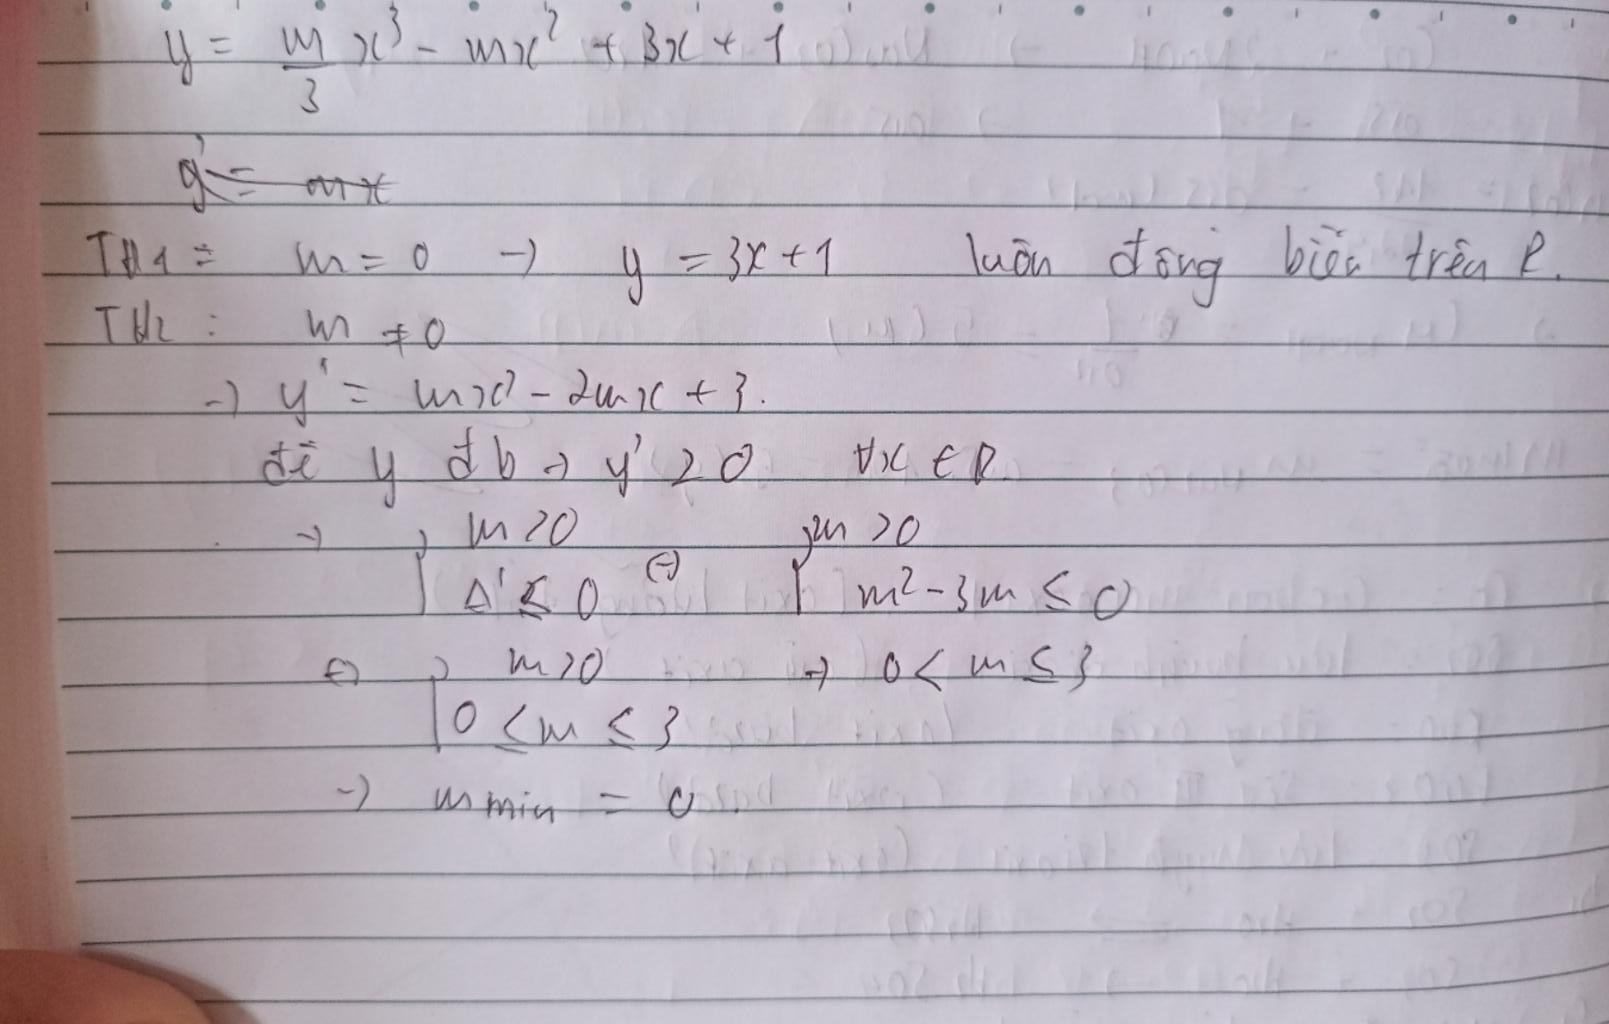 y = m/3 x³ - mx² + 3x + 1
y' = mx
TH1 : m = 0 → y = 3x + 1 luôn đồng biến trên R.
TH2 : m ≠ 0
→ y' = mx² - 2mx + 3.
để y đb → y' ≥ 0 ∀x ∈ R.
→ { m > 0 { m > 0
{ Δ' ≤ 0 ⇔ { m² - 3m ≤ 0
⇔ { m > 0 → 0 < m ≤ 3
{ 0 ≤ m ≤ 3
→ m min = 0.